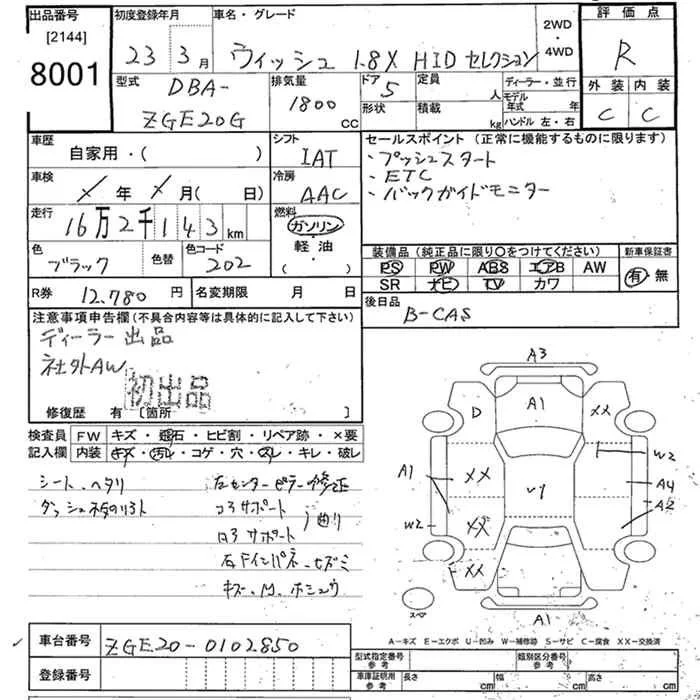 出品番号
[2144]
8001
初度登録年月
23 3月
車名・グレード
ウィッシュ 1.8X HID セレクション
2WD
・
4WD
評価点
R
外装 内装
C C
型式
DBA-
ZGE20G
排気量
1800
cc
ドア
5
形状
定員
人
積載
kg
ディーラー・並行
モデル
年式 年
ハンドル 左・右
車歴
自家用・( )
シフト
IAT
セールスポイント(正常に機能するものに限ります)
・プッシュスタート
・ETC
・バックガイドモニター
車検
年 月( 日)
冷房
AAC
走行
16万2千143km
燃料
ガソリン
・
軽油
・
( )
色
ブラック
色替
色コード
202
装備品(純正品に限り〇をつけてください)
PS PW ABS エアB AW
SR ナビ TV カワ
新車保証書
有・無
R券 12,780円
名変期限 月 日
後日品
B-CAS
注意事項申告欄(不具合内容等は具体的に記入して下さい)
ディーラー出品
社外AW
初出品
修復歴 有 〔箇所 〕
検査員
記入欄
FW キズ・飛石・ヒビ割・リペア跡・×要
内装 キズ・汚レ・コゲ・穴・スレ・キレ・破レ
シート、ヘタリ
左センターピラー修正
コアサポート
曲り
ロアサポート
キズ、M、ホシュウ
A3
A1
D
XX
W2
A1
XX
V1
A4
A2
XX
W2
XX
スペア
A1
A-キズ E-エクボ U-凹み W-補修跡 S-サビ C-腐食 XX-交換済
車台番号
ZGE20-0102850
登録番号
型式指定番号
参考
類別区分番号
参考
車庫証明用
参考
長さ cm 幅 cm 高さ cm